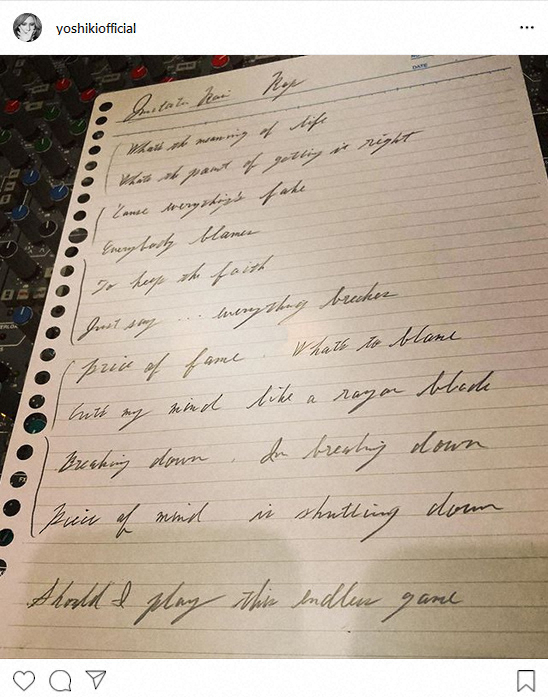 yoshikiofficial
DATE
Whats the meaning of life
Whats the point of getting it right
'Cause everything's fake
Everybody blames
To keep the faith
Just say ... everything breakes
Price of fame. Whats to blame
Cuts my mind like a razor blade
Breaking down. Im breaking down
Piece of mind is shutting down
Should I play this endless game